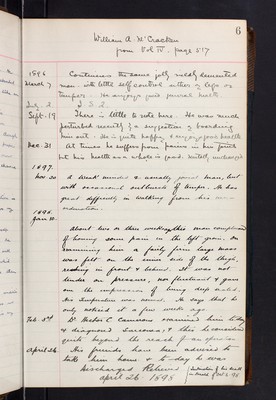 6
William A. McCracken
from Vol IV. page 517
1896
March 7. Continues the same jolly, solidly demented
man with little self control either of legs or
temper. He enjoys good general health.
July 2. I. S. Q.
Sept. 19 There is little to note here. He was much
perturbed recently by a suggestion of boarding
him out. He is quite happy & enjoys good health
Dec. 31 At times he suffers from pains in his joints
but his health as a whole is good. Mentally unchanged
1897.
Nov. 20 A weak minded & usually jovial man, but
with occasional outbursts of temper. He has
great difficulty in walking from his
ordination.
1898.
Jan. About two or three weeks ago this man complained
of having some pain in the left groin. On
examining him a fairly firm large mass
was felt on the inner side of the thigh,
reaching in front & behind. It was not
tender on pressure, nor fluctuant & gave
one the impression of being deep seated.
His temperature was normal. He says that he
only noticed it a few weeks ago
Feb. 3rd Dr. Hector C Cameron examined him today
& diagnosed Sarcoma, & this he considered
quite beyond the reach of an operation.
April 26 His friends have been advised to
take him home & to-day he was
Discharged Relieved
April 26 1898
Intimation of his death